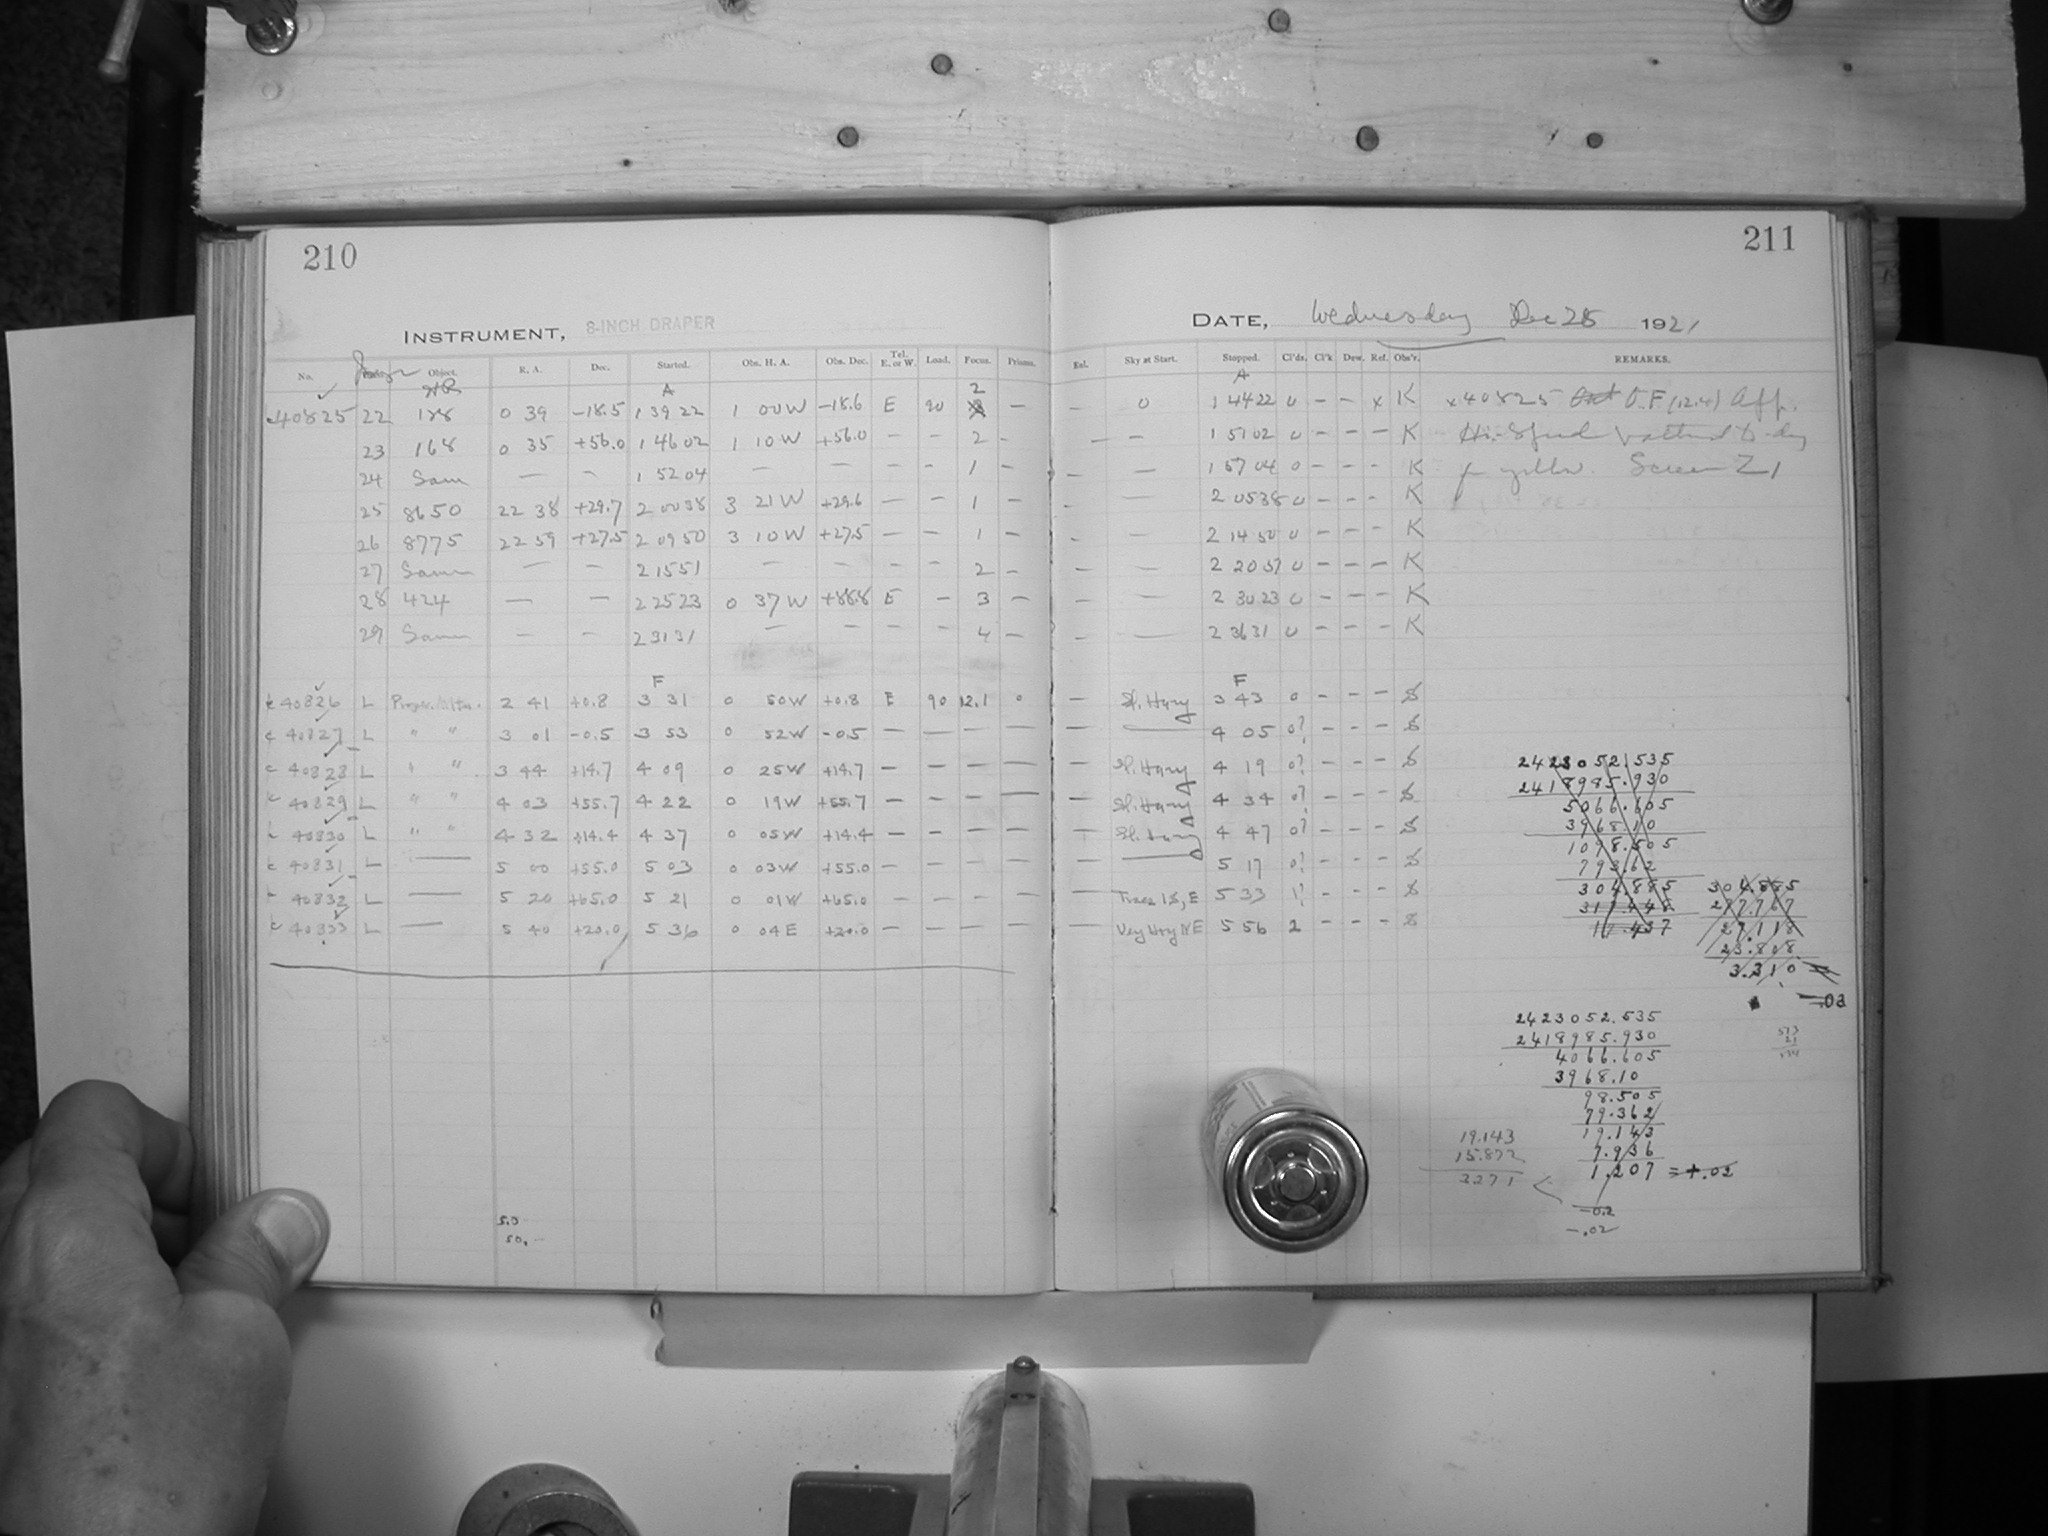 210
INSTRUMENT, 8-INCH DRAPER
No. Object. R. A. Dec. Started. Obs. H. A. Obs. Dec. Tel. E. or W. Load. Focus. Prisms.
HR A 2
40825 22 188 0 39 -18.5 1 39 22 1 00 W -18.6 E 90 —
23 168 0 35 +56.0 1 46 02 1 10 W +56.0 — — 2 –
24 Sam — – 1 52 04 — – – – 1 –
25 8650 22 38 +29.7 2 00 38 3 21 W +29.6 – – 1 –
26 8775 22 59 +27.5 2 09 50 3 10 W +27.5 – – 1 –
27 Sam — – 2 15 51 – – – – 2 –
28 424 — — 2 25 23 0 37 W +88.8 E – 3 –
29 Sam – – 2 31 31 – – – – 4 –
F
40826 L 2 41 +0.8 3 31 0 50W +0.8 E 90 12.1 0
40827 L " " 3 01 -0.5 3 53 0 52W -0.5 – — – —
40828 L " " 3 44 +14.7 4 09 0 25W +14.7 – – – —
40829 L " " 4 03 +55.7 4 22 0 19W +55.7 – – – —
40830 L " " 4 32 +14.4 4 37 0 05W +14.4 – – – –
40831 L — 5 00 +55.0 5 03 0 03W +55.0 – – – –
40832 L — 5 20 +65.0 5 21 0 01W +65.0 – – – –
40833 L — 5 40 +20.0 5 36 0 04 E +20.0 – – – –
5.0
50.–
211
DATE, Wednesday Dec 28 1921
Enl. Sky at Start. Stopped. Cl'ds. Cl'k Dew. Ref. Obs'r. REMARKS.
A
– 0 1 44 22 0 – – x K x40825 O.F (12.4) Aff.
– – 1 51 02 0 – – – K
— 1 57 04 0 – – K Screen Z1
– — 2 05 38 0 – – – K
– — 2 14 50 0 – – – K
— 2 20 51 0 – – – K
– — 2 30 23 0 – – – K
– — 2 36 31 0 – – – K
F
— Sl. Hazy 3 43 0 – – – S
– — 4 05 0? – – – S
— Sl. Hazy 4 19 0? – – – S
— Sl. Hazy 4 34 0? – – – S
— Sl. Hazy 4 47 0? – – – S
– — 5 17 0? – – – S
— 5 33 1? – – – S
Very Hzy NE 5 56 2 – – – S
2423052.535
2418985.930
5066.605
3968.10
1098.505
793.62
304.885
317.448
12.437
304.885
277.767
27.118
23.808
3.310 =
-.02
2423052.535
2418985.930
4066.605
3968.10
98.505
79.362
19.143
7.936
1.207 = +.02
19.143
15.872
3271
-0.2
-.02